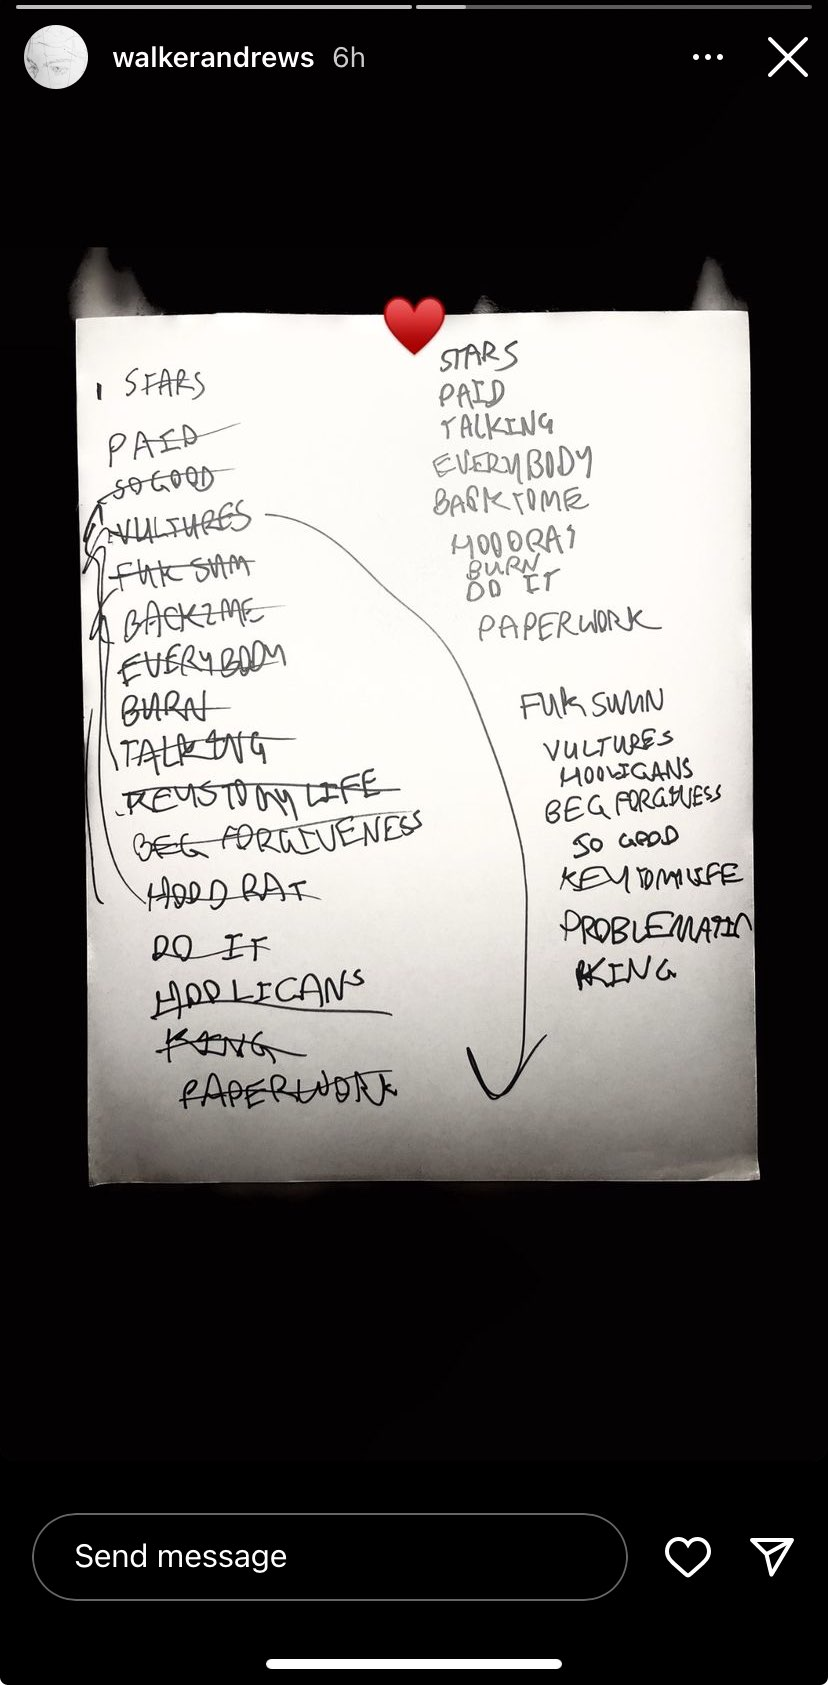 walkerandrews 6h
1 STARS
PAID
SO GOOD
VULTURES
FUK SUM
BACK2ME
EVERYBODY
BURN
TALKING
KEYSTOMY LIFE
BEG FORGIVENESS
HOOD RAT
DO IT
HOOLIGANS
KING
PAPERWORK
STARS
PAID
TALKING
EVERYBODY
BACKTOME
HOODRAT
BURN
DO IT
PAPERWORK
FUK SUMN
VULTURES
HOOLIGANS
BEG FORGIVESS
SO GOOD
KEYTOMYLIFE
PROBLEMATIC
KING
Send message